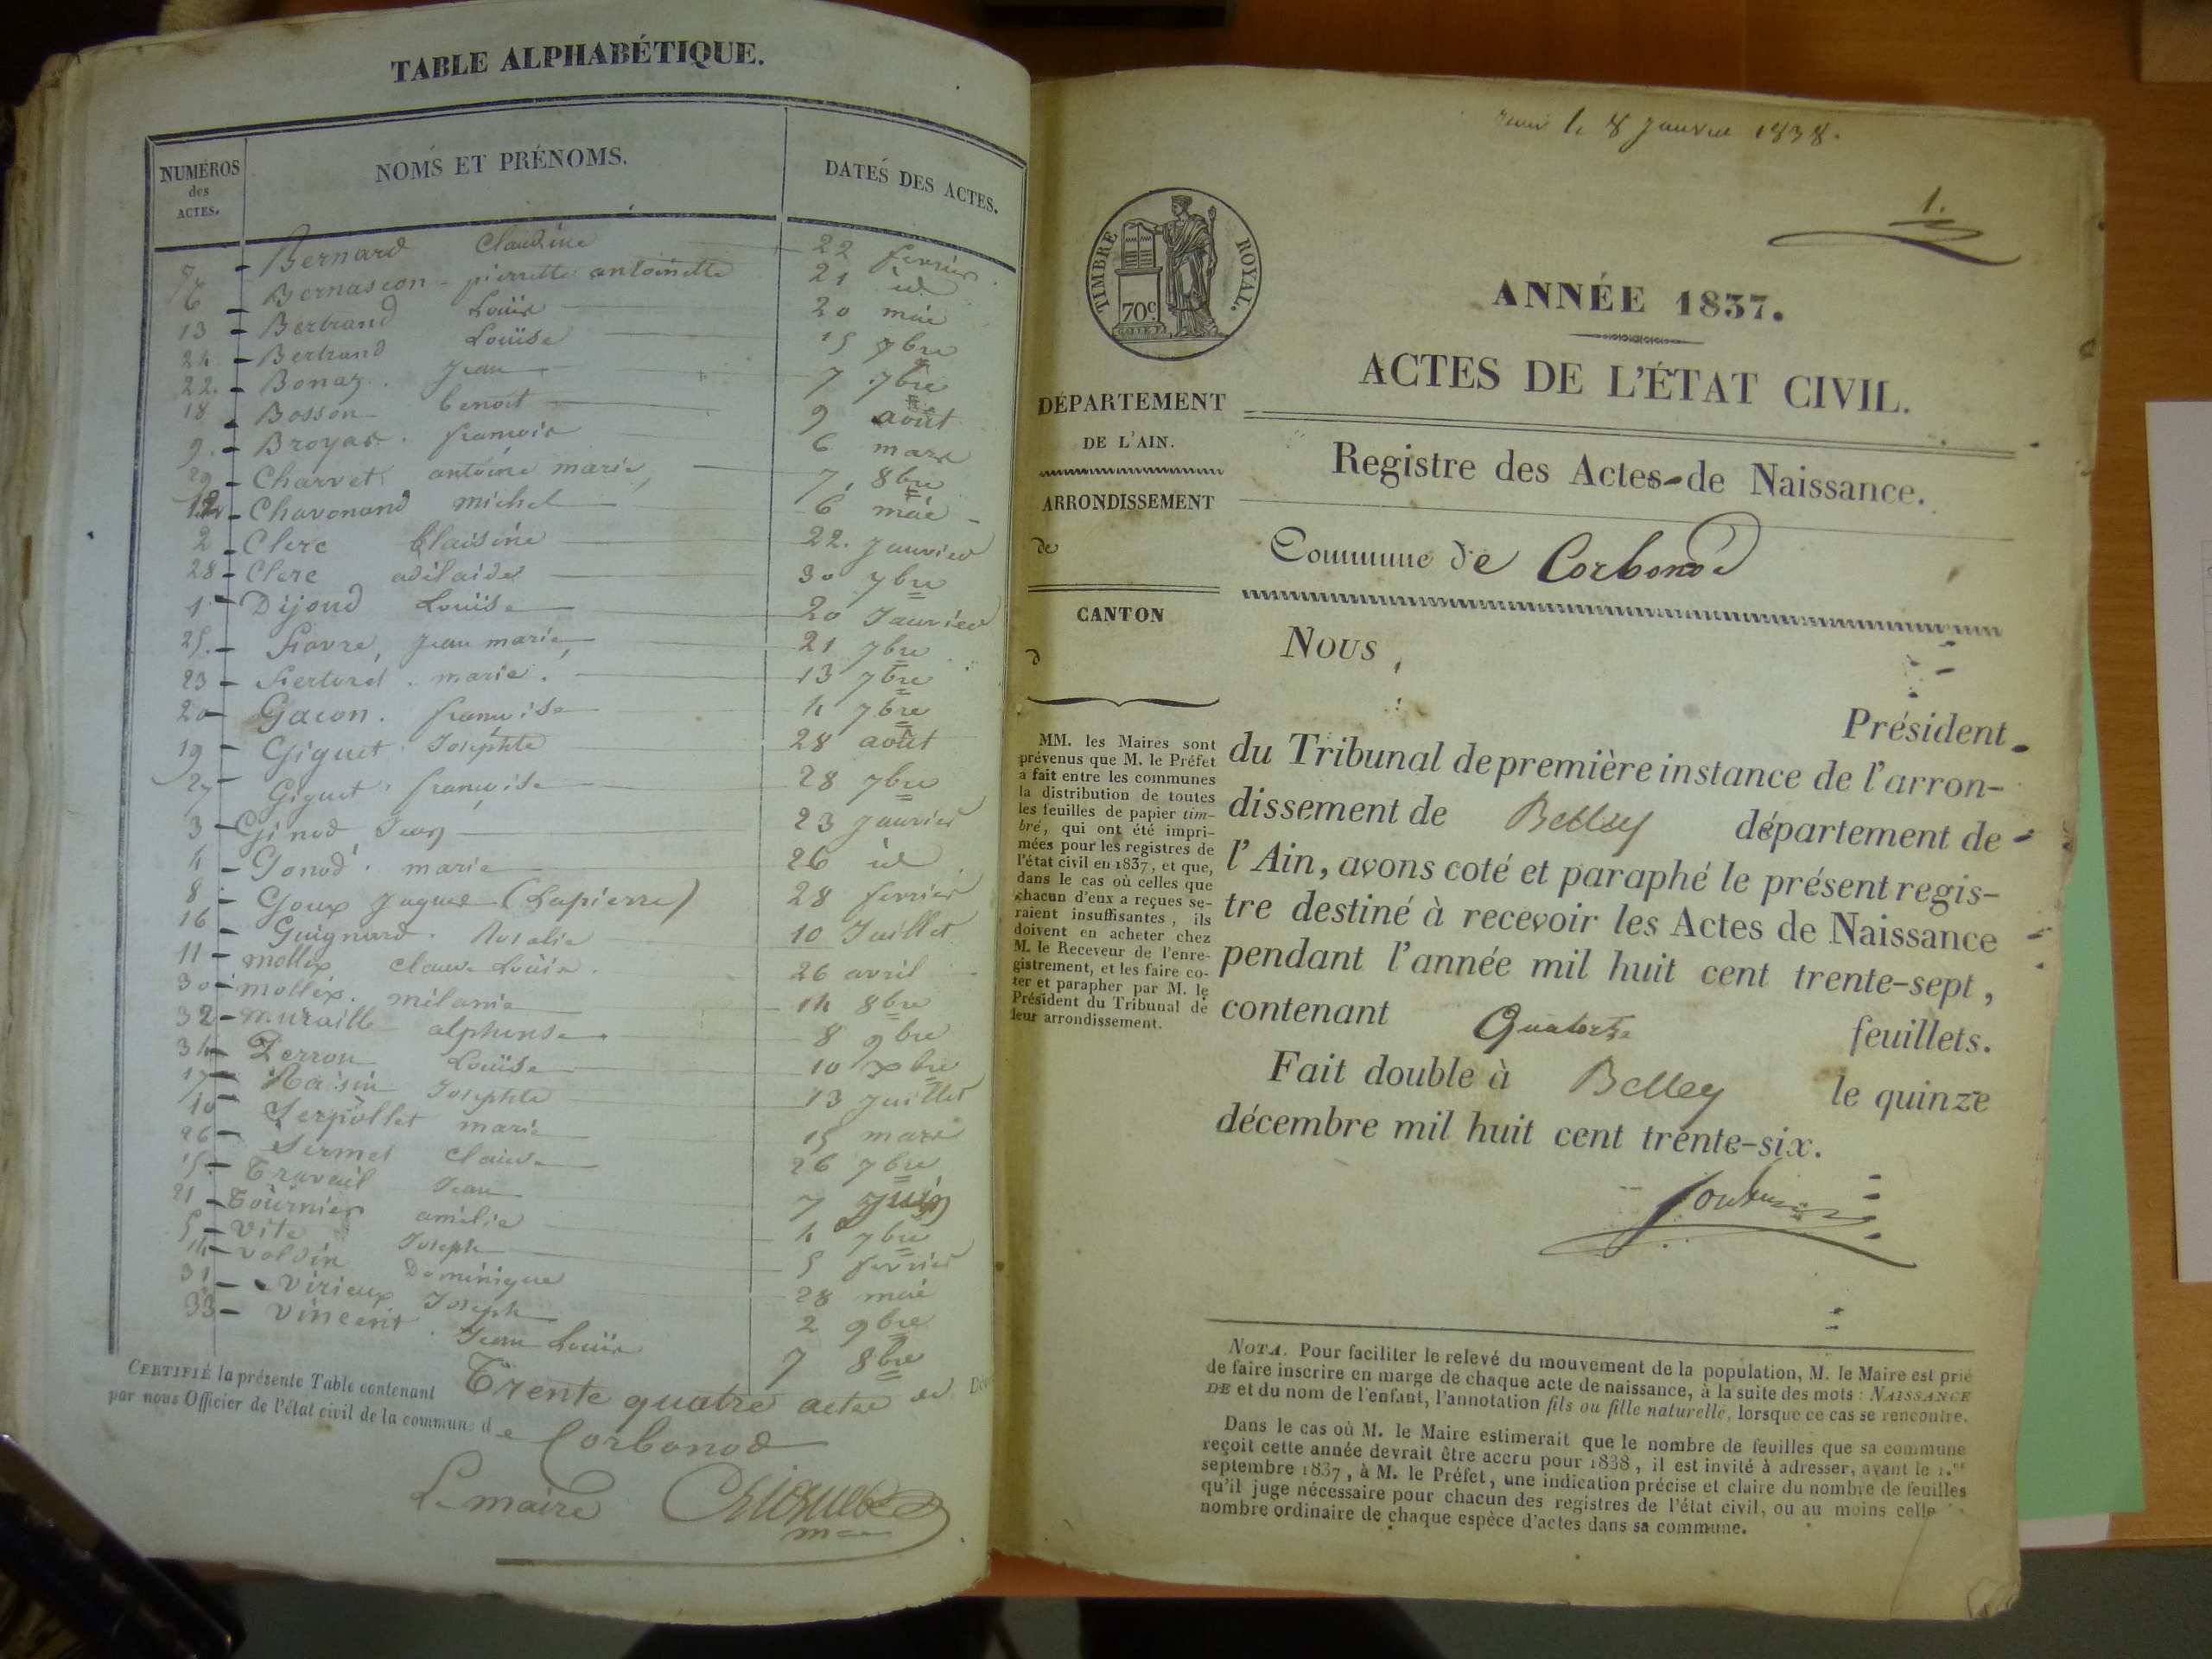 TABLE ALPHABÉTIQUE.
NUMÉROS des ACTES.
NOMS ET PRÉNOMS.
DATES DES ACTES.
7 Bernard Claudine 22 fevrier
6 Bernascon pierrette antoinette 21 id
13 Bertrand Louis 20 mai
24 Bertrand Louïse 15 7bre
22. Bonaz. Jean 7 7bre
18 Bosson benoit 9 août
9. Broyar. francois 6 mars
29 Charvet antoine marie 7 8bre
12 Chavonand michel 6 mai
2 Clerc blaisine 22. Janvier
28 Clerc adélaide 30 7bre
1 Dijoud Louïse 20 Janvier
25. favre, jean marie 21 7bre
23 fertoret. marie. 13 7bre
20 Gacon. francoise 4 7bre
19 Giguet Josephte 28 août
27 Giguet francoise 28 7bre
3 Ginod Jean 23 Janvier
4 Gonod. marie 26 id
8 Goux Jaques (Lapierre) 28 fevrier
16 Guignard. Rosalie 10 Juillet
11 mollex Claude Louis. 26 avril
30 mollex. mélanie 14 8bre
32 muraille alphonse 8 9bre
34 Perron Louïse 10 xbre
17 Raisin Josephte 13 Juillet
10 Serpollet marie 15 mars
26 Sermet Claude 26 7bre
15 Travail Jean 7 Juin
21 Tournier amélie 4 7bre
5 Vite Joseph 5 fevrier
14 Volvin Dominique 28 mai
31 Virieux Joseph 2 9bre
33 Vincent. Jean Louis 7 8bre
CERTIFIÉ la présente Table contenant Trente quatre actes
par nous Officier de l'état civil de la commune de Corbonod
Le maire
le 8 Janvier 1838.
1.
TIMBRE ROYAL.
70c.
ANNÉE 1837.
ACTES DE L'ÉTAT CIVIL.
DÉPARTEMENT
DE L'AIN.
ARRONDISSEMENT
de
CANTON
d
Registre des Actes de Naissance.
Commune de Corbonod
MM. les Maires sont
prévenus que M. le Préfet
a fait entre les communes
la distribution de toutes
les feuilles de papier tim-
bré, qui ont été impri-
mées pour les registres de
l'état civil en 1837, et que,
dans le cas où celles que
chacun d'eux a reçues se-
raient insuffisantes, ils
doivent en acheter chez
M. le Receveur de l'enre-
gistrement, et les faire co-
ter et parapher par M. le
Président du Tribunal de
leur arrondissement.
Nous,
Président
du Tribunal de première instance de l'arron-
dissement de Belley département de
l'Ain, avons coté et paraphé le présent regis-
tre destiné à recevoir les Actes de Naissance
pendant l'année mil huit cent trente-sept,
contenant Quatorze feuillets.
Fait double à Belley le quinze
décembre mil huit cent trente-six.
NOTA. Pour faciliter le relevé du mouvement de la population, M. le Maire est prié
de faire inscrire en marge de chaque acte de naissance, à la suite des mots : NAISSANCE
DE et du nom de l'enfant, l'annotation fils ou fille naturelle, lorsque ce cas se rencontre.
Dans le cas où M. le Maire estimerait que le nombre de feuilles que sa commune
reçoit cette année devrait être accru pour 1838, il est invité à adresser, avant le 1.er
septembre 1837, à M. le Préfet, une indication précise et claire du nombre de feuilles
qu'il juge nécessaire pour chacun des registres de l'état civil, ou au moins celle
nombre ordinaire de chaque espèce d'actes dans sa commune.